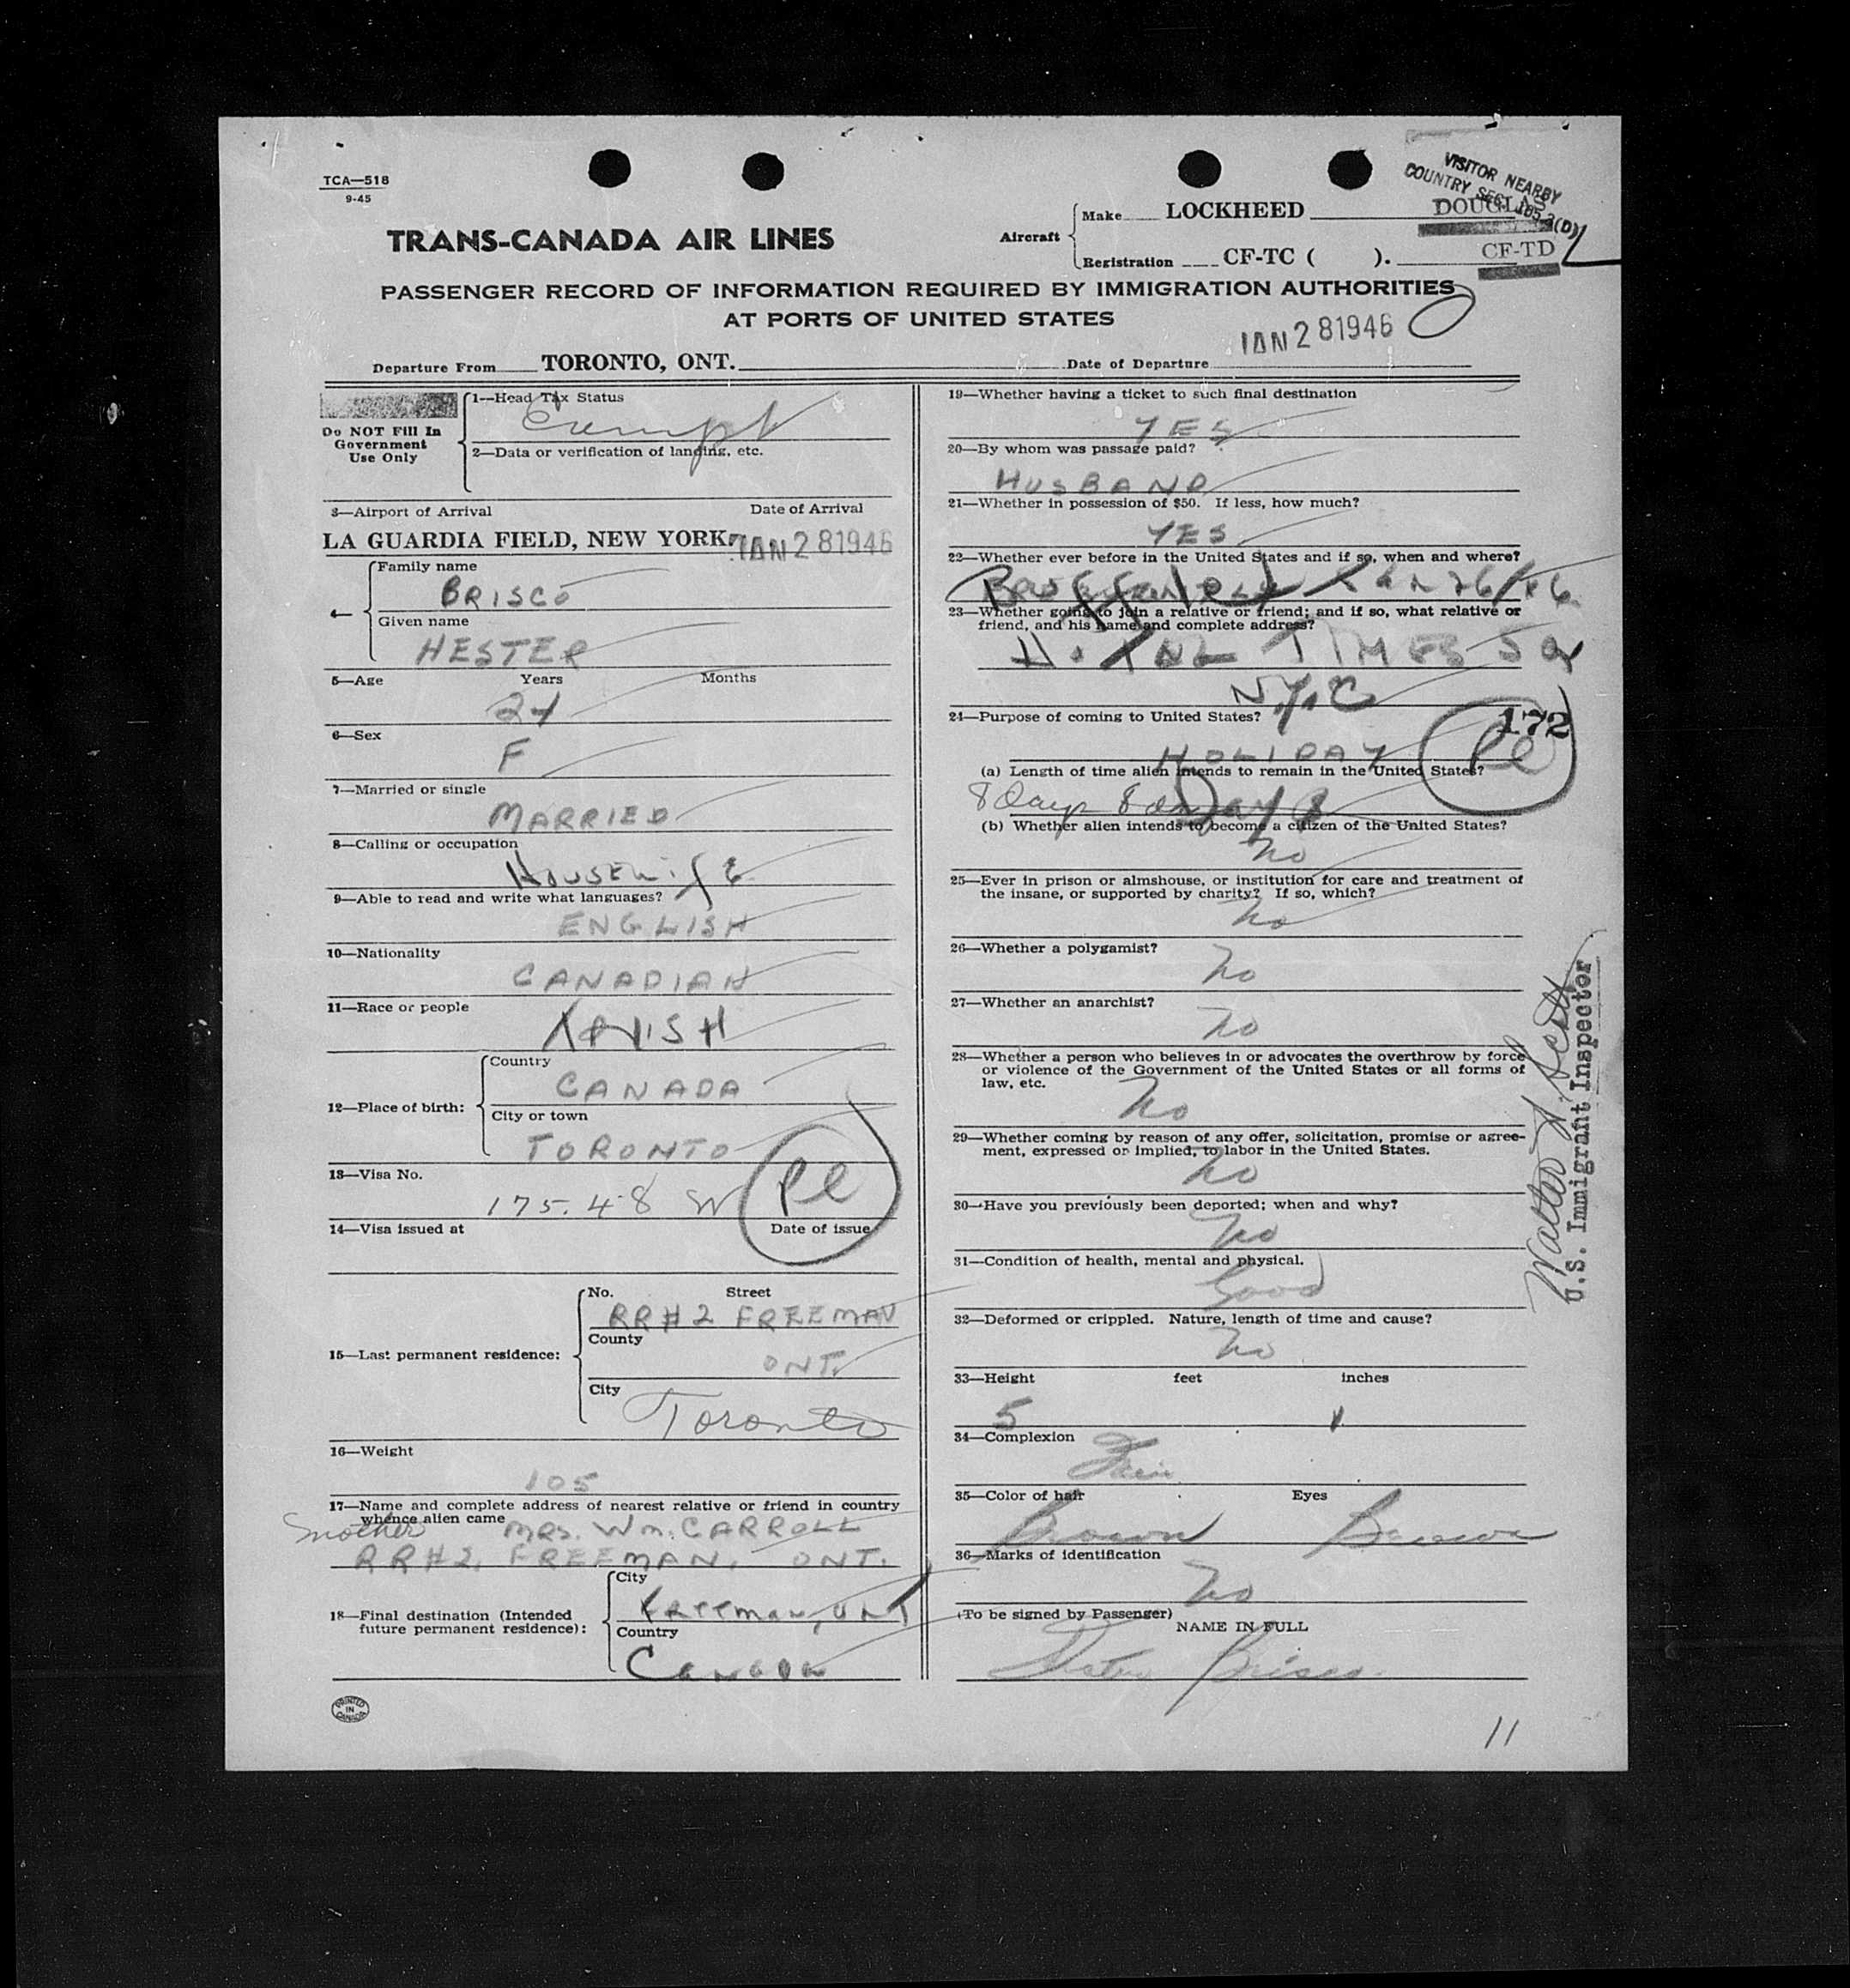 TCA—518
9-45
TRANS-CANADA AIR LINES
Aircraft
Make LOCKHEED DOUGLAS
Registration CF-TC ( ). CF-TD
VISITOR NEARBY
COUNTRY SEC.
PASSENGER RECORD OF INFORMATION REQUIRED BY IMMIGRATION AUTHORITIES
AT PORTS OF UNITED STATES
JAN 2 8 1946
Departure From TORONTO, ONT. Date of Departure
Do NOT Fill In
Government
Use Only
1—Head Tax Status
Exempt
2—Data or verification of landing, etc.
3—Airport of Arrival Date of Arrival
LA GUARDIA FIELD, NEW YORK. JAN 2 8 1946
4—
Family name
BRISCO
Given name
HESTER
5—Age Years Months
6—Sex
F
7—Married or single
MARRIED
8—Calling or occupation
HOUSEWIFE
9—Able to read and write what languages?
ENGLISH
10—Nationality
CANADIAN
11—Race or people
IRISH
12—Place of birth:
Country
CANADA
City or town
TORONTO
13—Visa No.
175.48
14—Visa issued at Date of issue
15—Last permanent residence:
No. Street
RR#2 FREEMAN
County
ONT.
City
Toronto
16—Weight
105
17—Name and complete address of nearest relative or friend in country
whence alien came
mother MRS. WM. CARROLL
RR#2, FREEMAN, ONT.
18—Final destination (Intended
future permanent residence):
City
FREEMAN, ONT
Country
CANADA
PRINTED
IN
CANADA
19—Whether having a ticket to such final destination
YES
20—By whom was passage paid?
HUSBAND
21—Whether in possession of $50. If less, how much?
YES
22—Whether ever before in the United States and if so, when and where?
23—Whether going to join a relative or friend; and if so, what relative or
friend, and his name and complete address?
HOTEL TIMES SQ
N.Y.C
24—Purpose of coming to United States?
172
HOLIDAY
(a) Length of time alien intends to remain in the United States?
8 Days
(b) Whether alien intends to become a citizen of the United States?
No
25—Ever in prison or almshouse, or institution for care and treatment of
the insane, or supported by charity? If so, which?
No
26—Whether a polygamist?
No
27—Whether an anarchist?
No
28—Whether a person who believes in or advocates the overthrow by force
or violence of the Government of the United States or all forms of
law, etc.
No
29—Whether coming by reason of any offer, solicitation, promise or agree-
ment, expressed or implied, to labor in the United States.
No
30—Have you previously been deported; when and why?
No
31—Condition of health, mental and physical.
Good
32—Deformed or crippled. Nature, length of time and cause?
No
33—Height feet inches
5 1
34—Complexion
Fair
35—Color of hair Eyes
Brown Brown
36—Marks of identification
No
(To be signed by Passenger)
NAME IN FULL
Hester Brisco
11
Walter
U.S. Immigrant Inspector